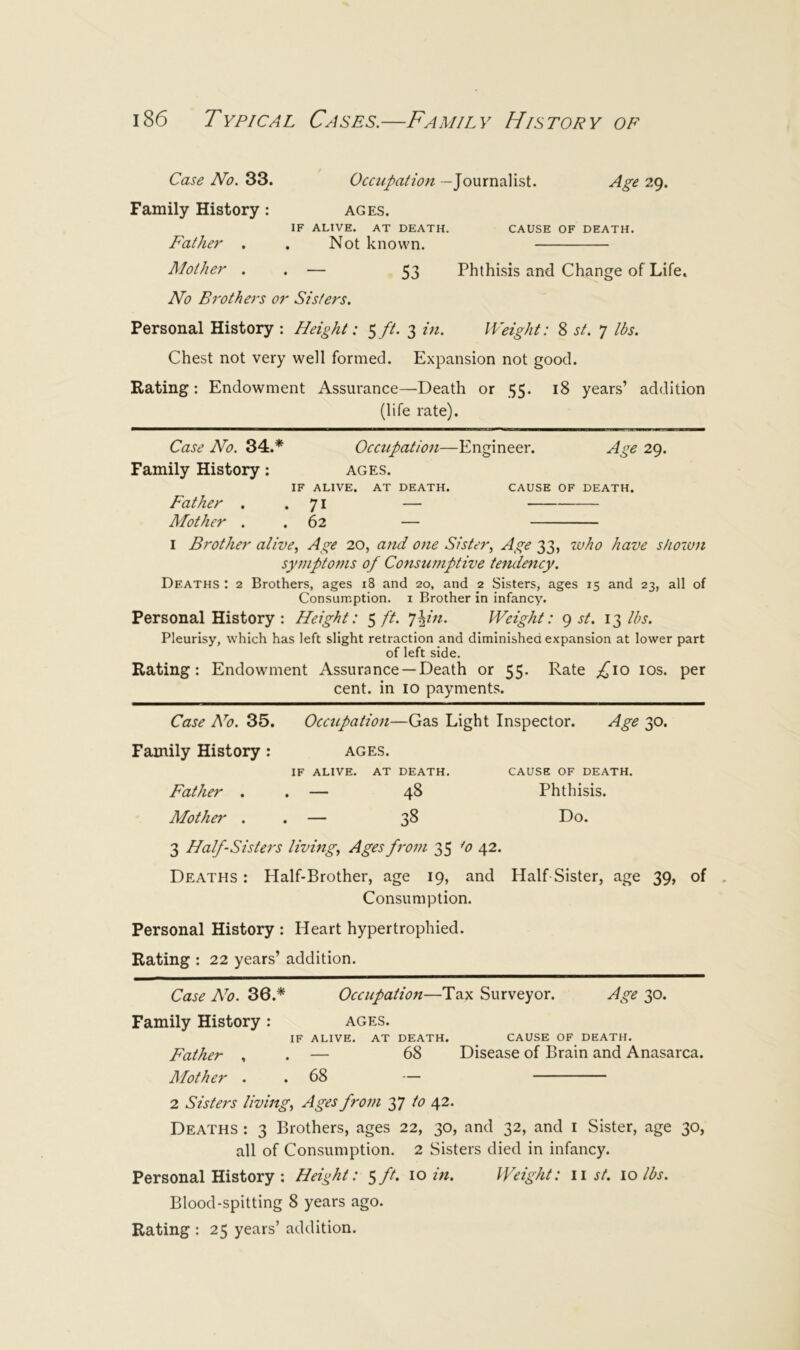 186 TYPICAL CASES.—FAMILY HISTORY OF
Case No. 33. Occupation—Journalist. Age 29.
Family History : AGES.
IF ALIVE. AT DEATH. CAUSE OF DEATH.
Father . . Not known. ———
Mother . . — 53 Phthisis and Change of Life.
No Brothers or Sisters.
Personal History : Height: 5 ft. 3 in. Weight: 8 st. 7 lbs.
Chest not very well formed. Expansion not good.
Rating : Endowment Assurance—Death or 55. 18 years’ addition
(life rate).
Case No. 34.* Occupation—Engineer. Age 29.
Family History : AGES.
IF ALIVE. AT DEATH. CAUSE OF DEATH.
Father . . 71 — ———
Mother . . 62 — ———
1 Brother alive, Age 20, and one Sister, Age 33, who have shown
symptoms of Consumptive tendency.
DEATHS : 2 Brothers, ages 18 and 20, and 2 Sisters, ages 15 and 23, all of
Consumption. 1 Brother in infancy.
Personal History : Height: 5 ft. 7½in. Weight: 9 st. 13 lbs.
Pleurisy, which has left slight retraction and diminished expansion at lower part
of left side.
Rating : Endowment Assurance—Death or 55. Rate £10 10s. per
cent. in 10 payments.
Case No. 35. Occupation—Gas Light Inspector. Age 30.
Family History : AGES.
IF ALIVE. AT DEATH. CAUSE OF DEATH.
Father . . — 48 Phthisis.
Mother . . — 38 Do.
3 Half-Sisters living, Ages from 35 to 42.
DEATHS : Half-Brother, age 19, and Half-Sister, age 39, of
Consumption.
Personal History : Heart hypertrophied.
Rating : 22 years’ addition.
Case No. 36.* Occupation—Tax Surveyor. Age 30.
Family History : AGES.
IF ALIVE. AT DEATH. CAUSE OF DEATH.
Father , . — 68 Disease of Brain and Anasarca.
Mother . . 68 — ———
2 Sisters living, Ages from 37 to 42.
DEATHS : 3 Brothers, ages 22, 30, and 32, and 1 Sister, age 30,
all of Consumption. 2 Sisters died in infancy.
Personal History : Height: 5 ft. 10 in. Weight: 11 st. 10 lbs.
Blood-spitting 8 years ago.
Rating : 25 years’ addition.